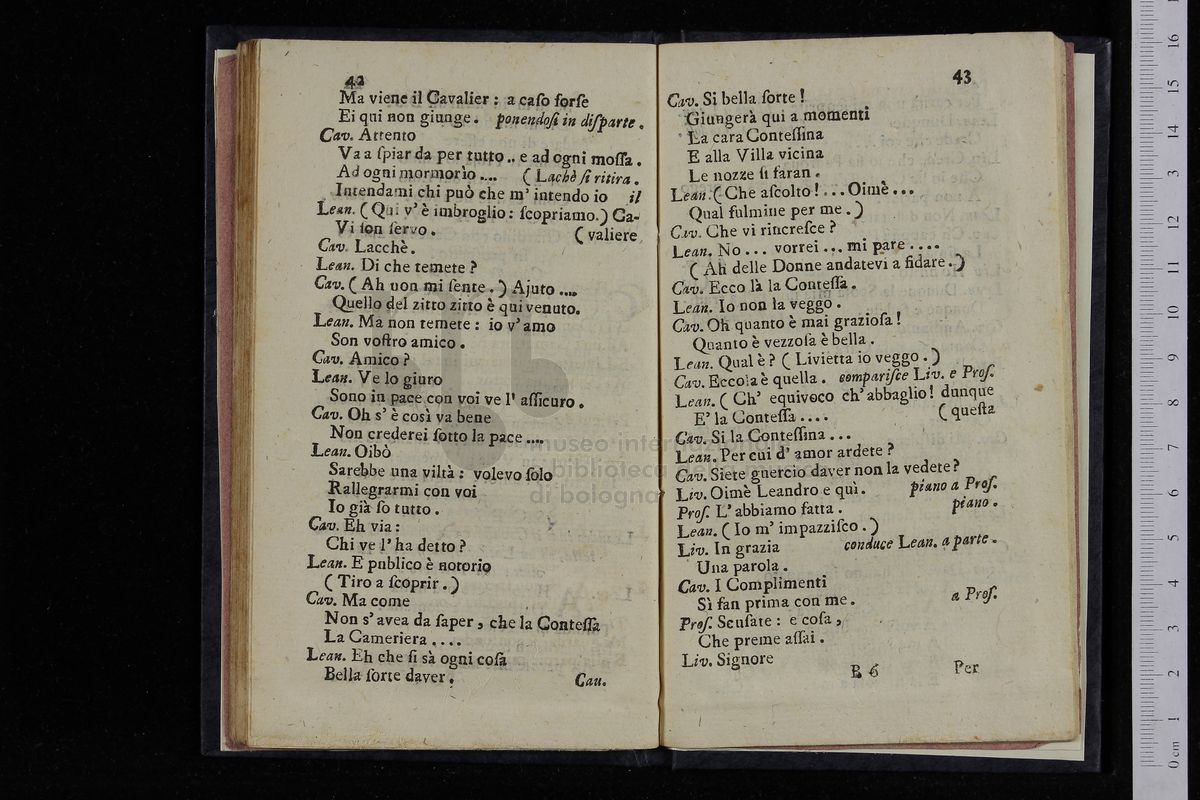 42
Ma viene il Cavalier : a caſo forſe
Ei qui non giunge . ponendoſi in diſparte .
Cav. Attento
Va a ſpiar da per tutto .. e ad ogni moſſa .
Ad ogni mormorìo .... ( Lachè ſi ritira .
Intendami chi può che m' intendo io il
Lean. ( Qui v' è imbroglio : ſcopriamo. ) Ca-
Vi ſon ſervo . ( valiere
Cav. Lacchè .
Lean. Di che temete ?
Cav. ( Ah uon mi ſente . ) Ajuto ....
Quello del zitto zitto è qui venuto.
Lean. Ma non temete : io v' amo
Son voſtro amico .
Cav. Amico ?
Lean. Ve lo giuro
Sono in pace con voi ve l' aſſicuro .
Cav. Oh s' è così va bene
Non crederei ſotto la pace ....
Lean. Oibò
Sarebbe una viltà : volevo ſolo
Rallegrarmi con voi
Io già ſo tutto .
Cav. Eh via :
Chi ve l' ha detto ?
Lean. E publico è notorio
( Tiro a ſcoprir . )
Cav. Ma come
Non s' avea da ſaper , che la Conteſſa
La Cameriera ....
Lean. Eh che ſi sà ogni coſa
Bella ſorte daver .
Cau.
43
Cav. Si bella ſorte !
Giungerà qui a momenti
La cara Conteſſina
E alla Villa vicina
Le nozze ſi faran .
Lean. ( Che aſcolto ! ... Oimè ...
Qual fulmine per me . )
Cav. Che vi rincreſce ?
Lean. No ... vorrei ... mi pare ....
( Ah delle Donne andatevi a fidare . )
Cav. Ecco là la Conteſſa .
Lean. Io non la veggo .
Cav. Oh quanto è mai grazioſa !
Quanto è vezzoſa è bella .
Lean. Qual è ? ( Livietta io veggo . )
Cav. Eccola è quella . compariſce Liv. e Proſ.
Lean. ( Ch' equivoco ch' abbaglio ! dunque
E' la Conteſſa .... ( queſta
Cav. Si la Conteſſina ...
Lean. Per cui d' amor ardete ?
Cav. Siete guercio daver non la vedete ?
Liv. Oimè Leandro e quì . piano a Proſ.
Proſ. L' abbiamo fatta . piano .
Lean. ( Io m' impazziſco . )
Liv. In grazia conduce Lean. a parte .
Una parola .
Cav. I Complimenti
Sì fan prima con me . a Proſ.
Proſ. Scuſate : e coſa ,
Che preme aſſai .
Liv. Signore
B 6 Per
museo internazionale
e biblioteca della musica
di bologna
0 cm 1 2 3 4 5 6 7 8 9 10 11 12 13 14 15 16